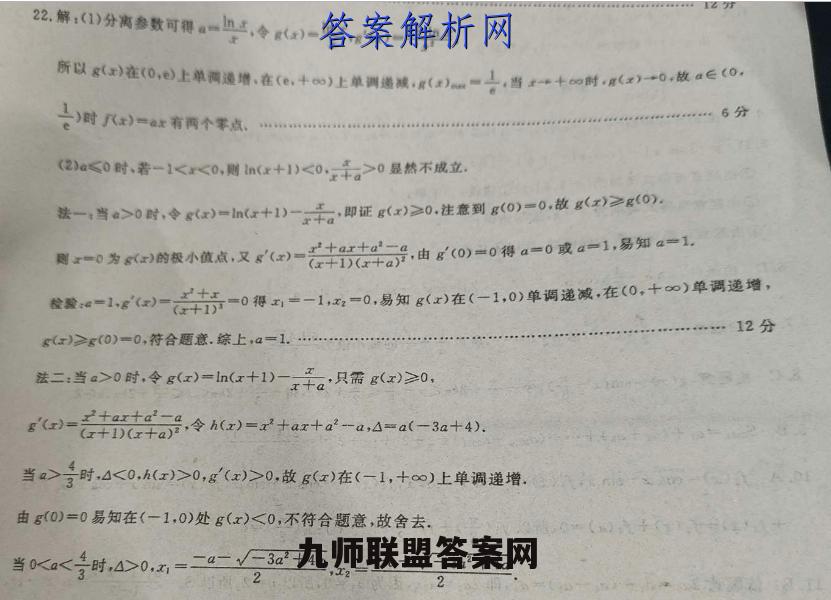 12 分
22.解:(1)分离参数可得 a=ln x/x,令 g(x)=
答案解析网
所以 g(x)在(0,e)上单调递增,在(e,+∞)上单调递减,g(x)max=1/e,当 x→+∞时,g(x)→0,故 a∈(0,
1/e)时 f(x)=ax 有两个零点. 6 分
(2)a≤0 时,若-1<x<0,则 ln(x+1)<0,x/(x+a)>0 显然不成立.
法一:当 a>0 时,令 g(x)=ln(x+1)-x/(x+a),即证 g(x)≥0,注意到 g(0)=0,故 g(x)≥g(0).
则 x=0 为 g(x)的极小值点,又 g′(x)=(x²+ax+a²-a)/((x+1)(x+a)²),由 g′(0)=0 得 a=0 或 a=1,易知 a=1.
检验:a=1,g′(x)=(x²+x)/(x+1)³=0 得 x₁=-1,x₂=0,易知 g(x)在(-1,0)单调递减,在(0,+∞)单调递增,
g(x)≥g(0)=0,符合题意.综上,a=1. 12 分
法二:当 a>0 时,令 g(x)=ln(x+1)-x/(x+a),只需 g(x)≥0,
g′(x)=(x²+ax+a²-a)/((x+1)(x+a)²),令 h(x)=x²+ax+a²-a,Δ=a(-3a+4).
当 a>4/3时,Δ<0,h(x)>0,g′(x)>0,故 g(x)在(-1,+∞)上单调递增.
由 g(0)=0 易知在(-1,0)处 g(x)<0,不符合题意,故舍去.
当 0<a<4/3时,Δ>0,x₁=(-a-√(-3a²+4))/2,x₂= /2.
九师联盟答案网